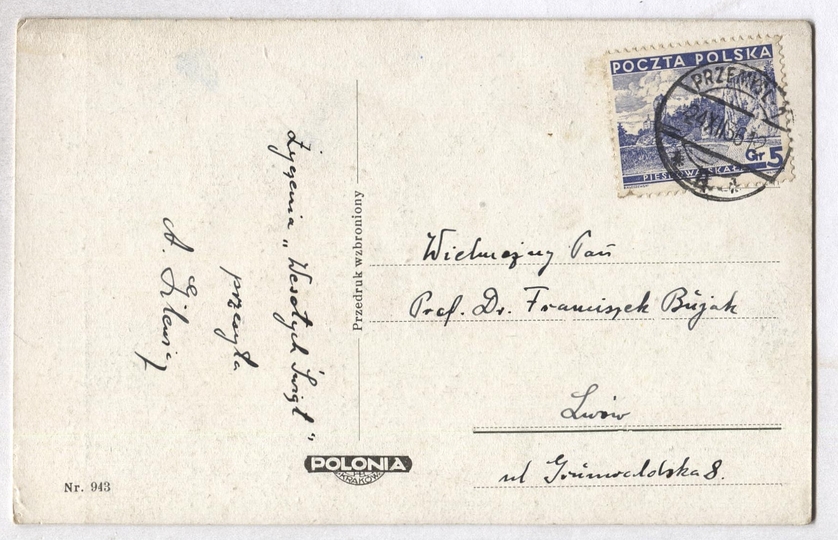 POCZTA POLSKA
PRZEMYŚL 1
24 XII 36 12
Gr 5
PIESKOWA SKAŁA
Życzenia „Wesołych Świąt"
przesyła
A.
Przedruk wzbroniony
Wielmożny Pan
Prof. Dr. Franciszek Bujak
Lwów
ul Grunwaldzka 8.
POLONIA
KRAKÓW
Nr. 943